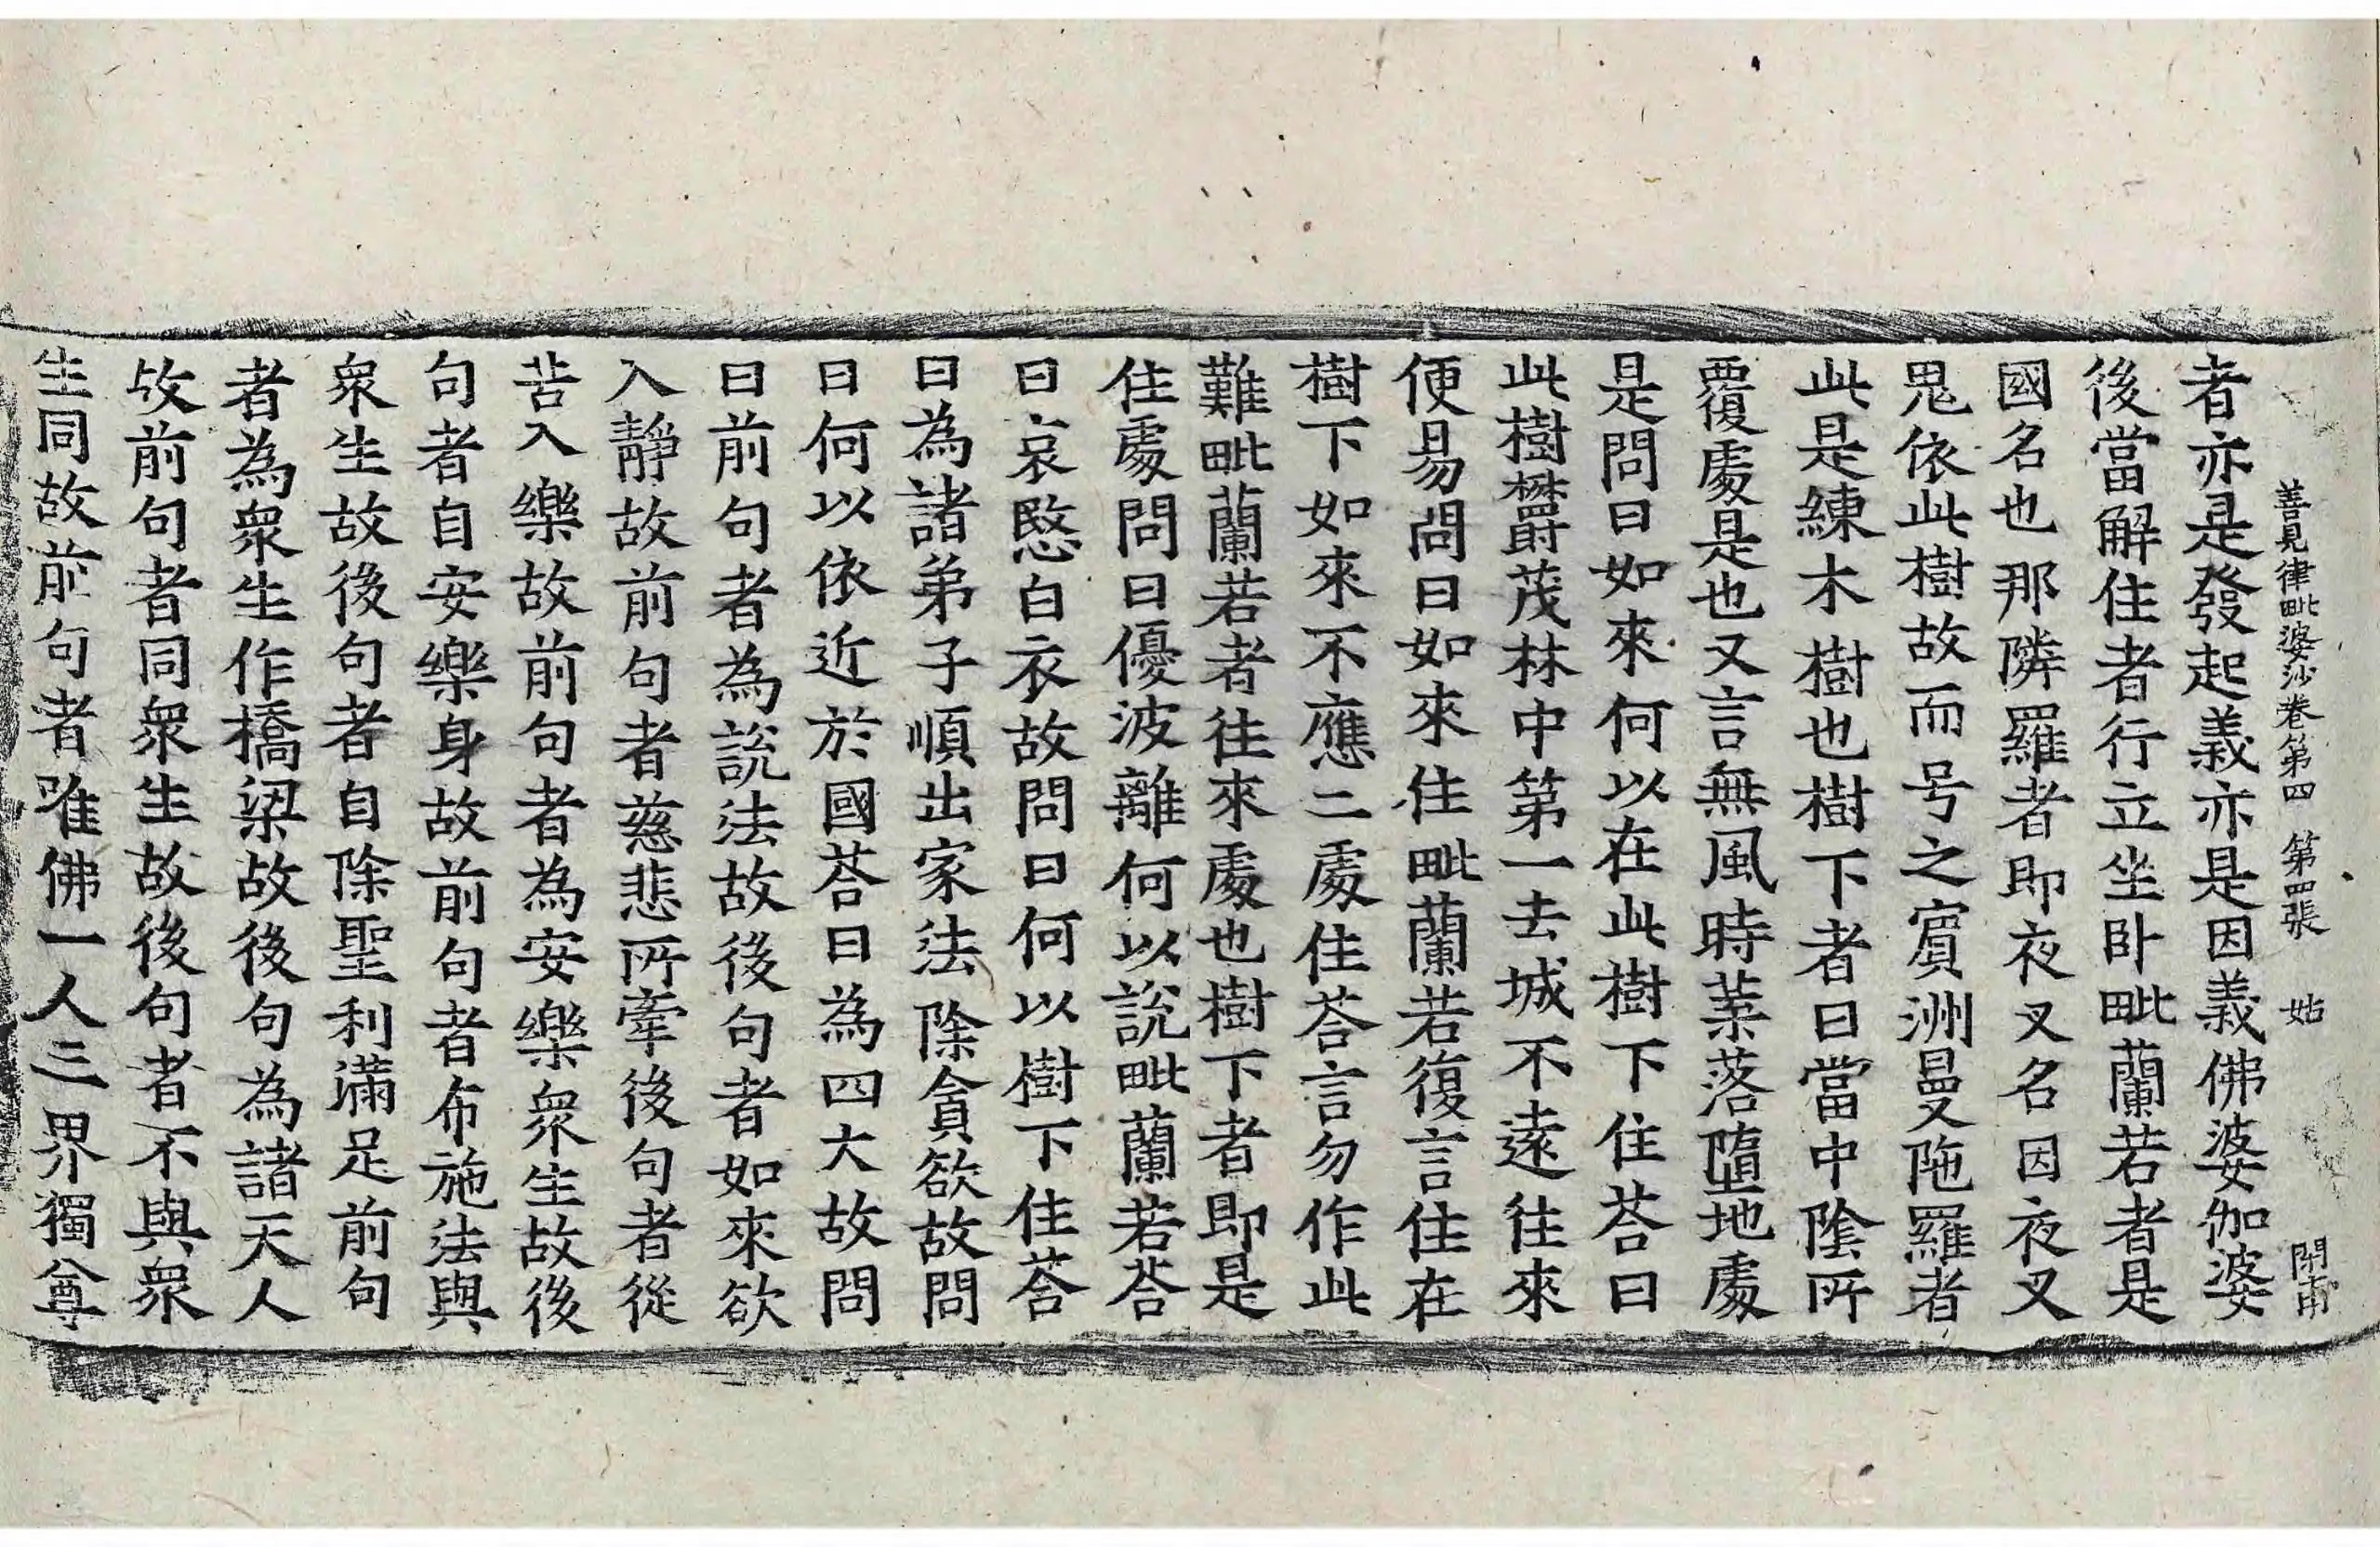 善見律毗婆沙卷第四 第四張 姑
者亦是發起義亦是因義佛婆伽婆
後當解住者行立坐卧毗蘭若者是
國名也那隣羅者即夜叉名因夜叉
鬼依此樹故而号之賔洲曼陁羅者
此是練木樹也樹下者曰當中隂所
覆處是也又言無風時葉落墮地處
是問曰如來何以在此樹下住荅曰
此樹欝茂林中第一去城不遠往來
便易問曰如來住毗蘭若復言住在
樹下如來不應二處住荅言勿作此
難毗蘭若者往來處也樹下者即是
住處問曰優波離何以説毗蘭若荅
曰哀愍白衣故問曰何以樹下住荅
曰為諸弟子順出家法除貪欲故問
曰何以依近於國荅曰為四大故問
曰前句者為説法故後句者如來欲
入靜故前句者慈悲所牽後句者從
苦入樂故前句者為安樂衆生故後
句者自安樂身故前句者布施法與
衆生故後句者自除聖利滿足前句
者為衆生作橋梁故後句為諸天人
故前句者同衆生故後句者不與衆
生同故前句者唯佛一人三界獨尊